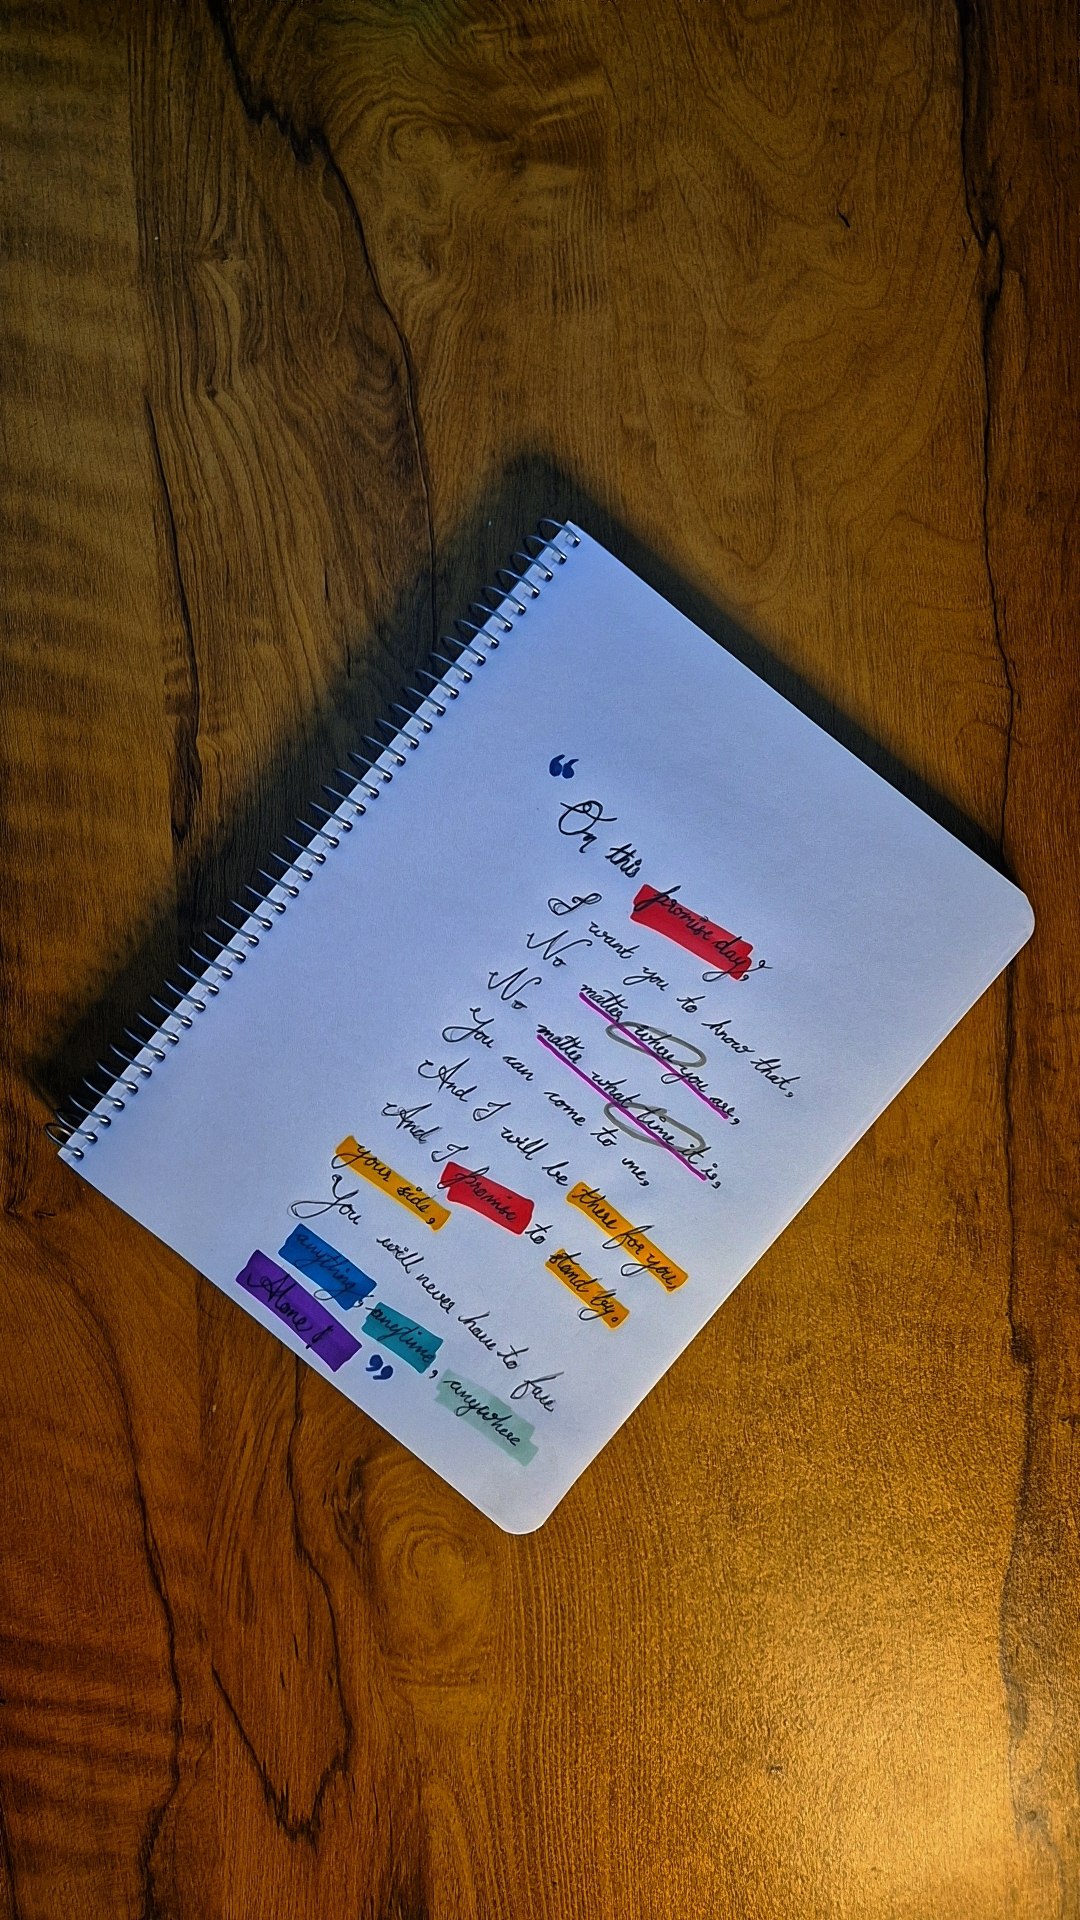 “
On this promise day,
I want you to know that,
No matter where you are,
No matter what time it is,
You can come to me,
And I will be there for you,
And I promise to stand by.
your side,
You will never have to face
anything, anytime, anywhere
Alone!
”